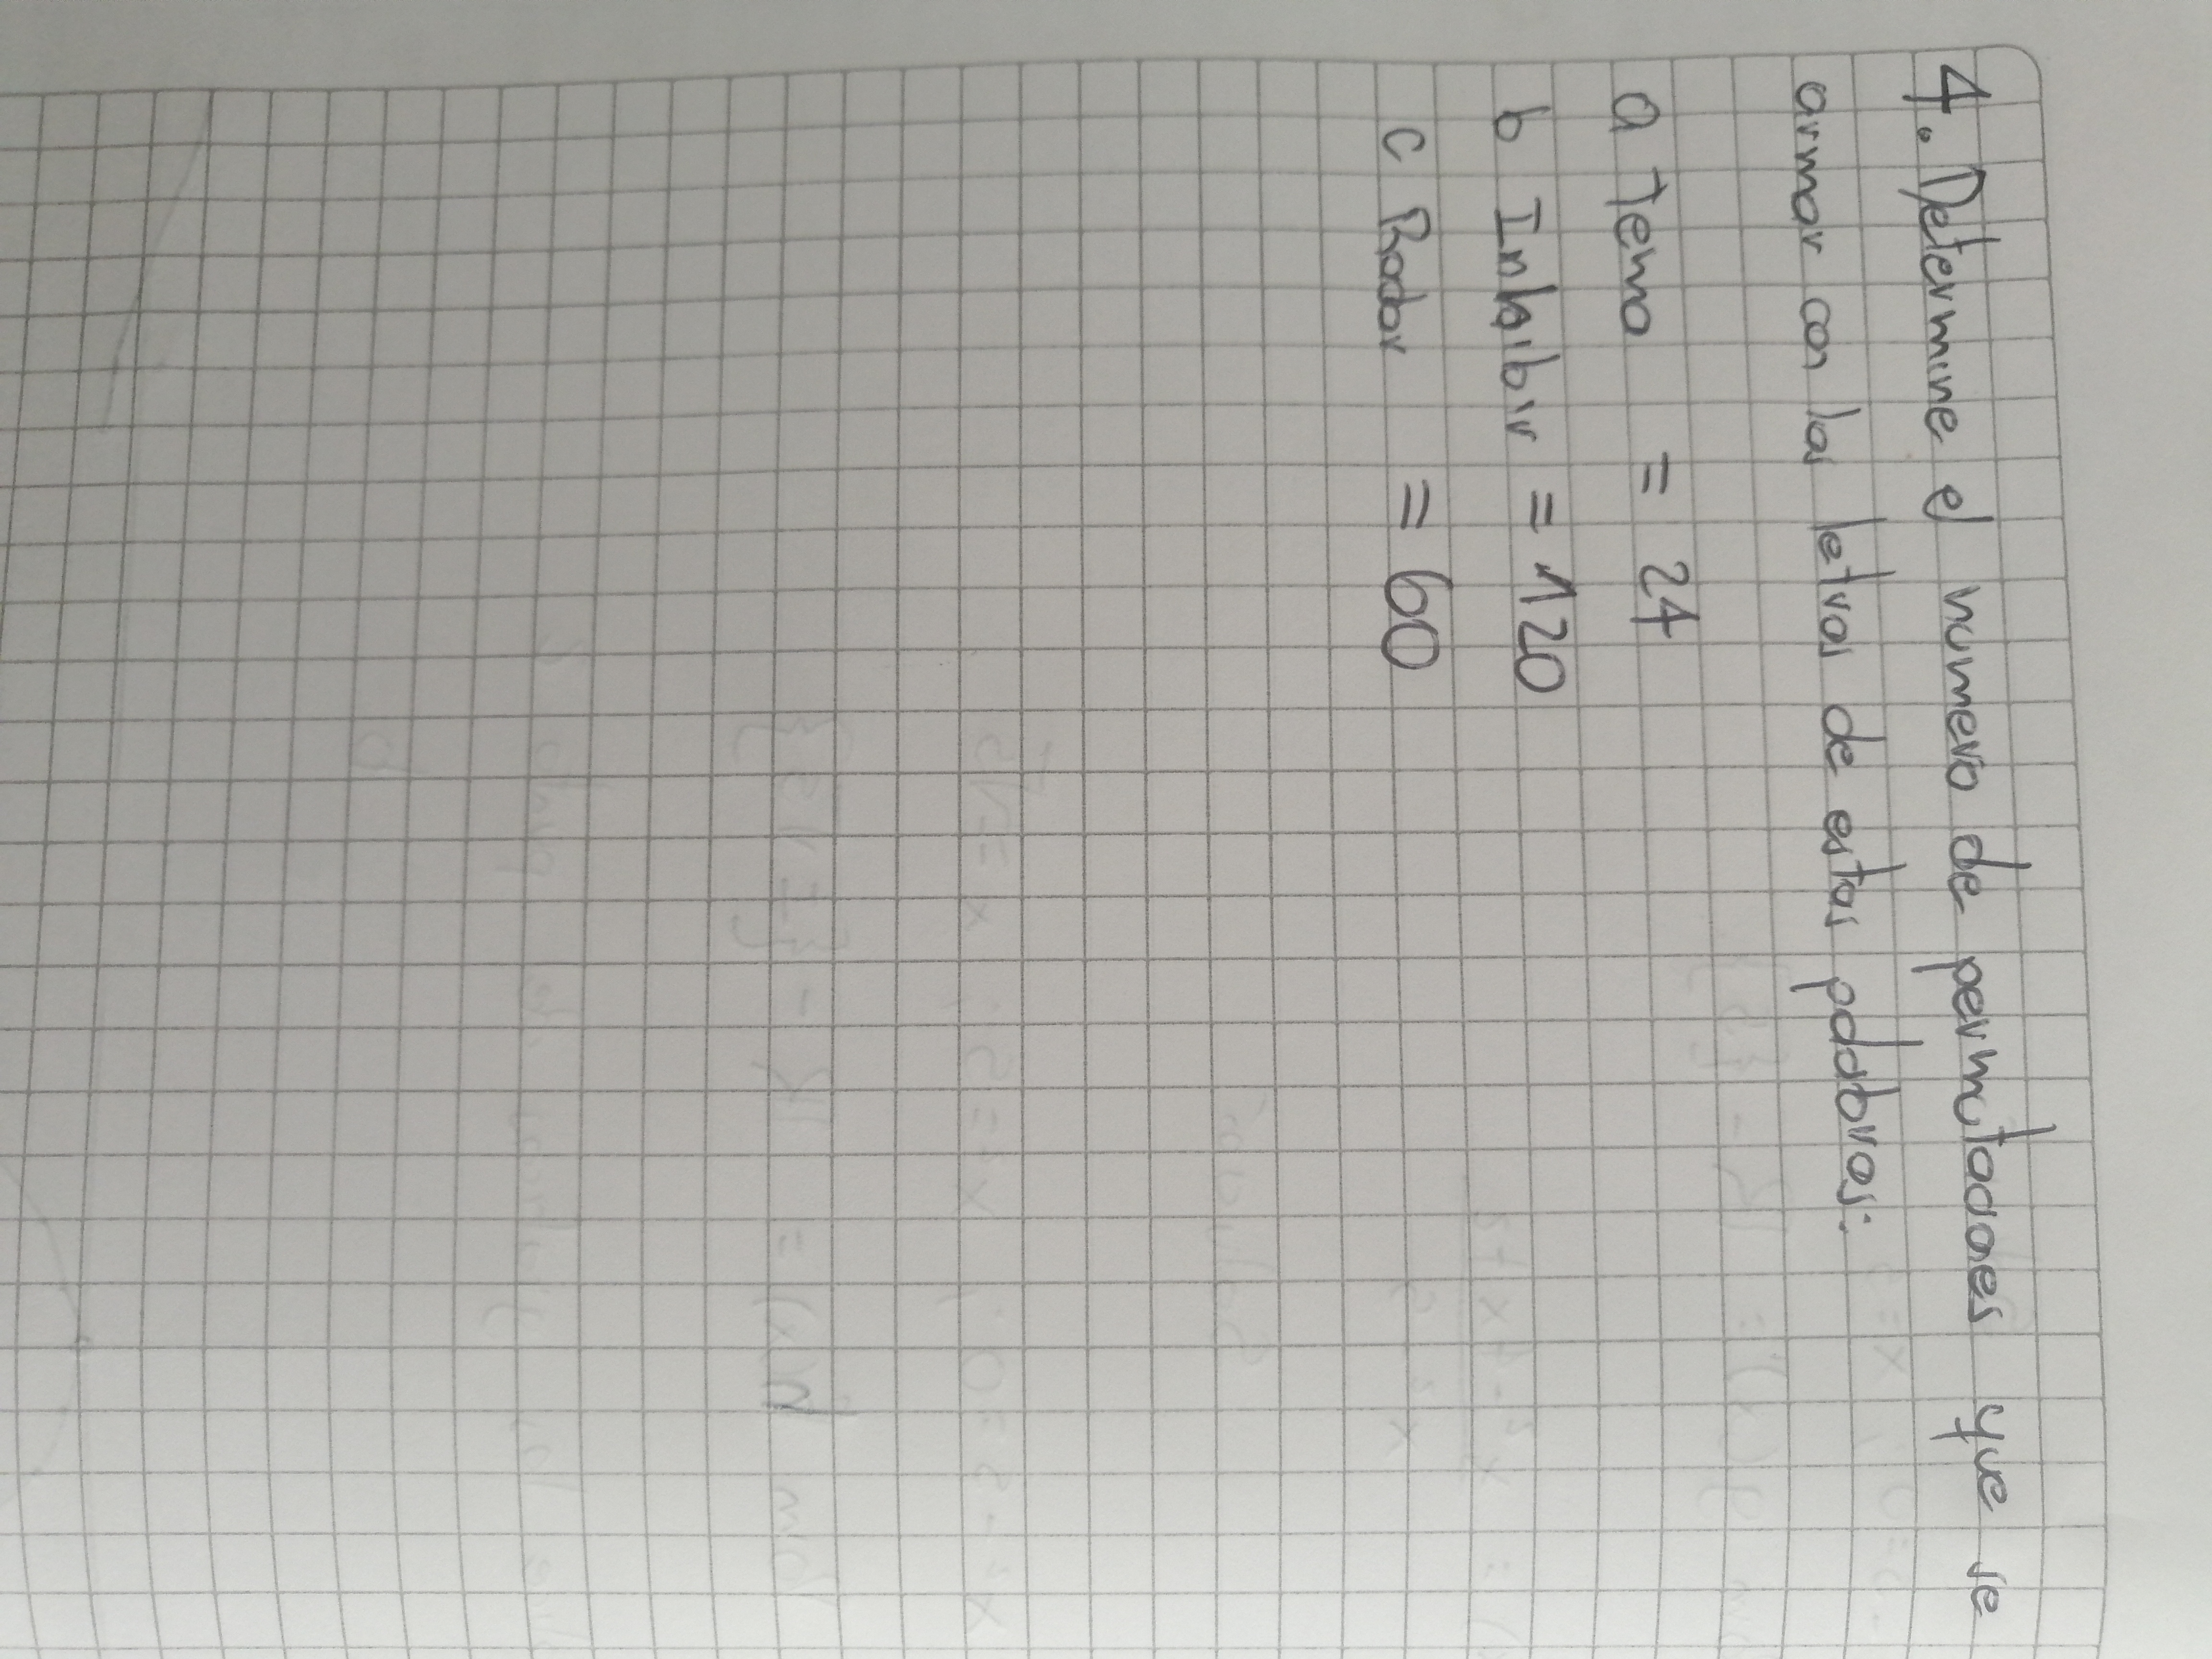 4. Determine el numero de permutaciones que se
armar con las letras de estas palabras:
a Tema = 24
b Inhibir = 120
c Radar = 60